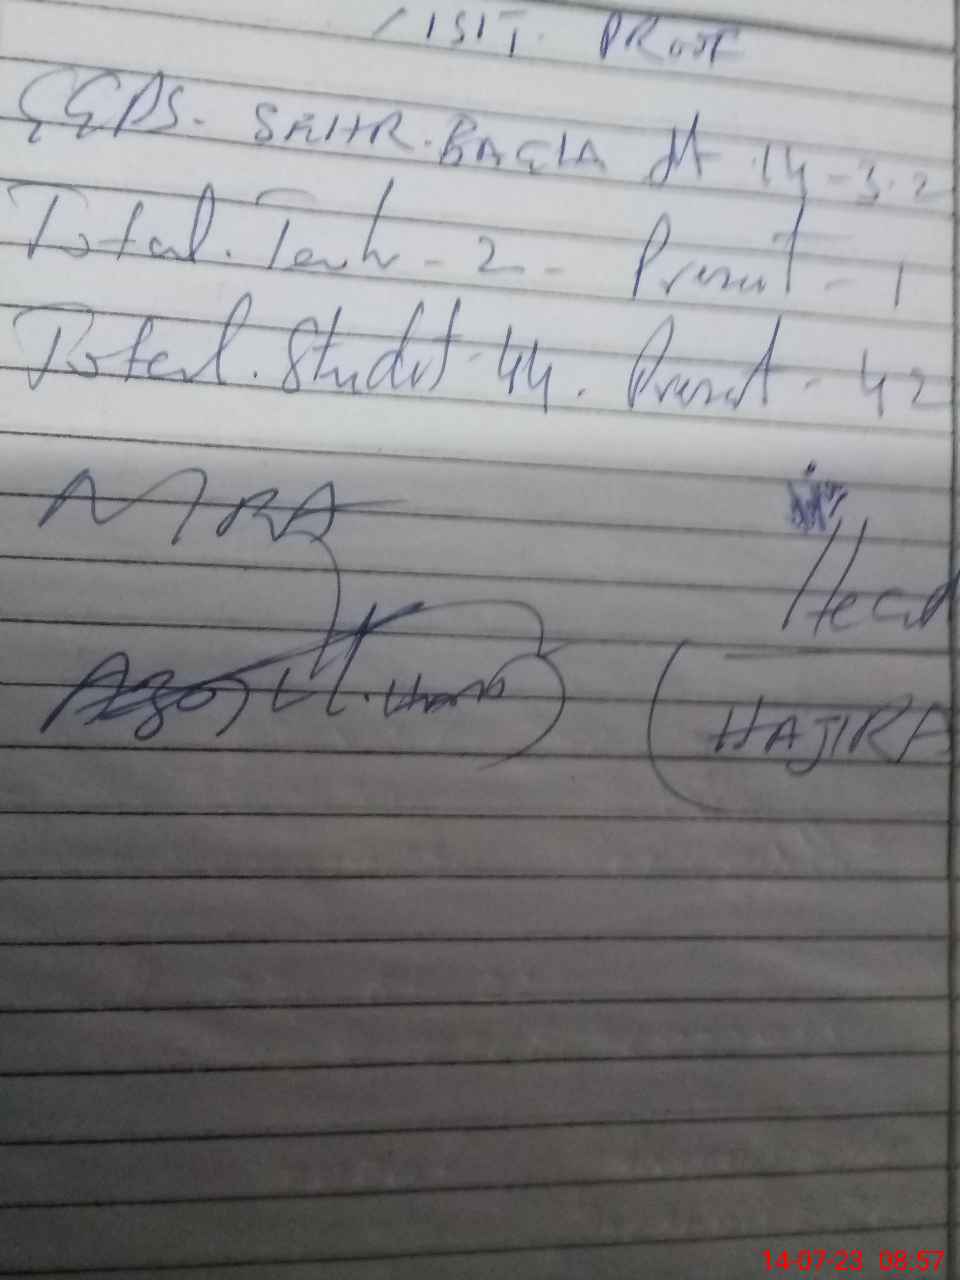 VISIT. PROOF
GGPS. SEHR. BAGLA dt 14-3-2
Total. Teach - 2 - Present - 1
Total. Studet - 44. Present - 42
Head
(HAJIRA
14-07-23 08:57